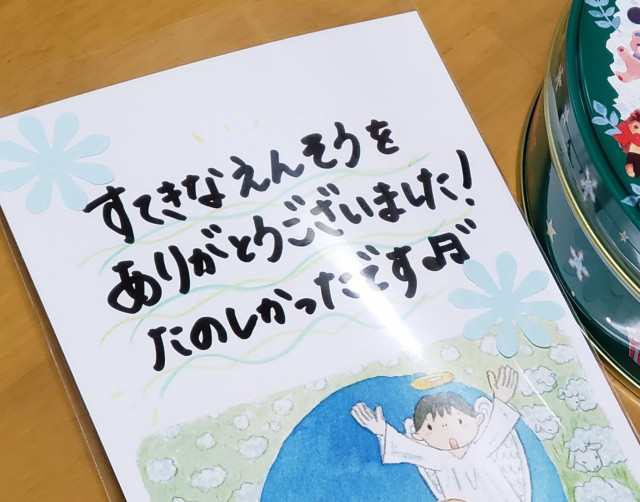 すてきなえんそうを
ありがとうございました!
たのしかったです♫